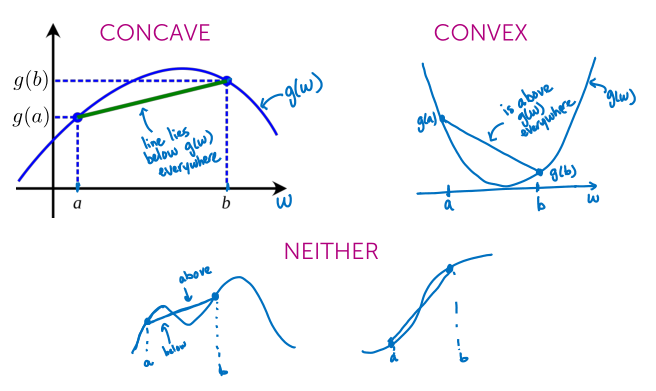 CONCAVE
g(b)
g(a)
g(w)
line lies
below g(w)
everywhere
a
b
w
CONVEX
g(a)
is above
g(w)
everywhere
g(w)
g(b)
a
b
w
NEITHER
above
below
a
b
a
b